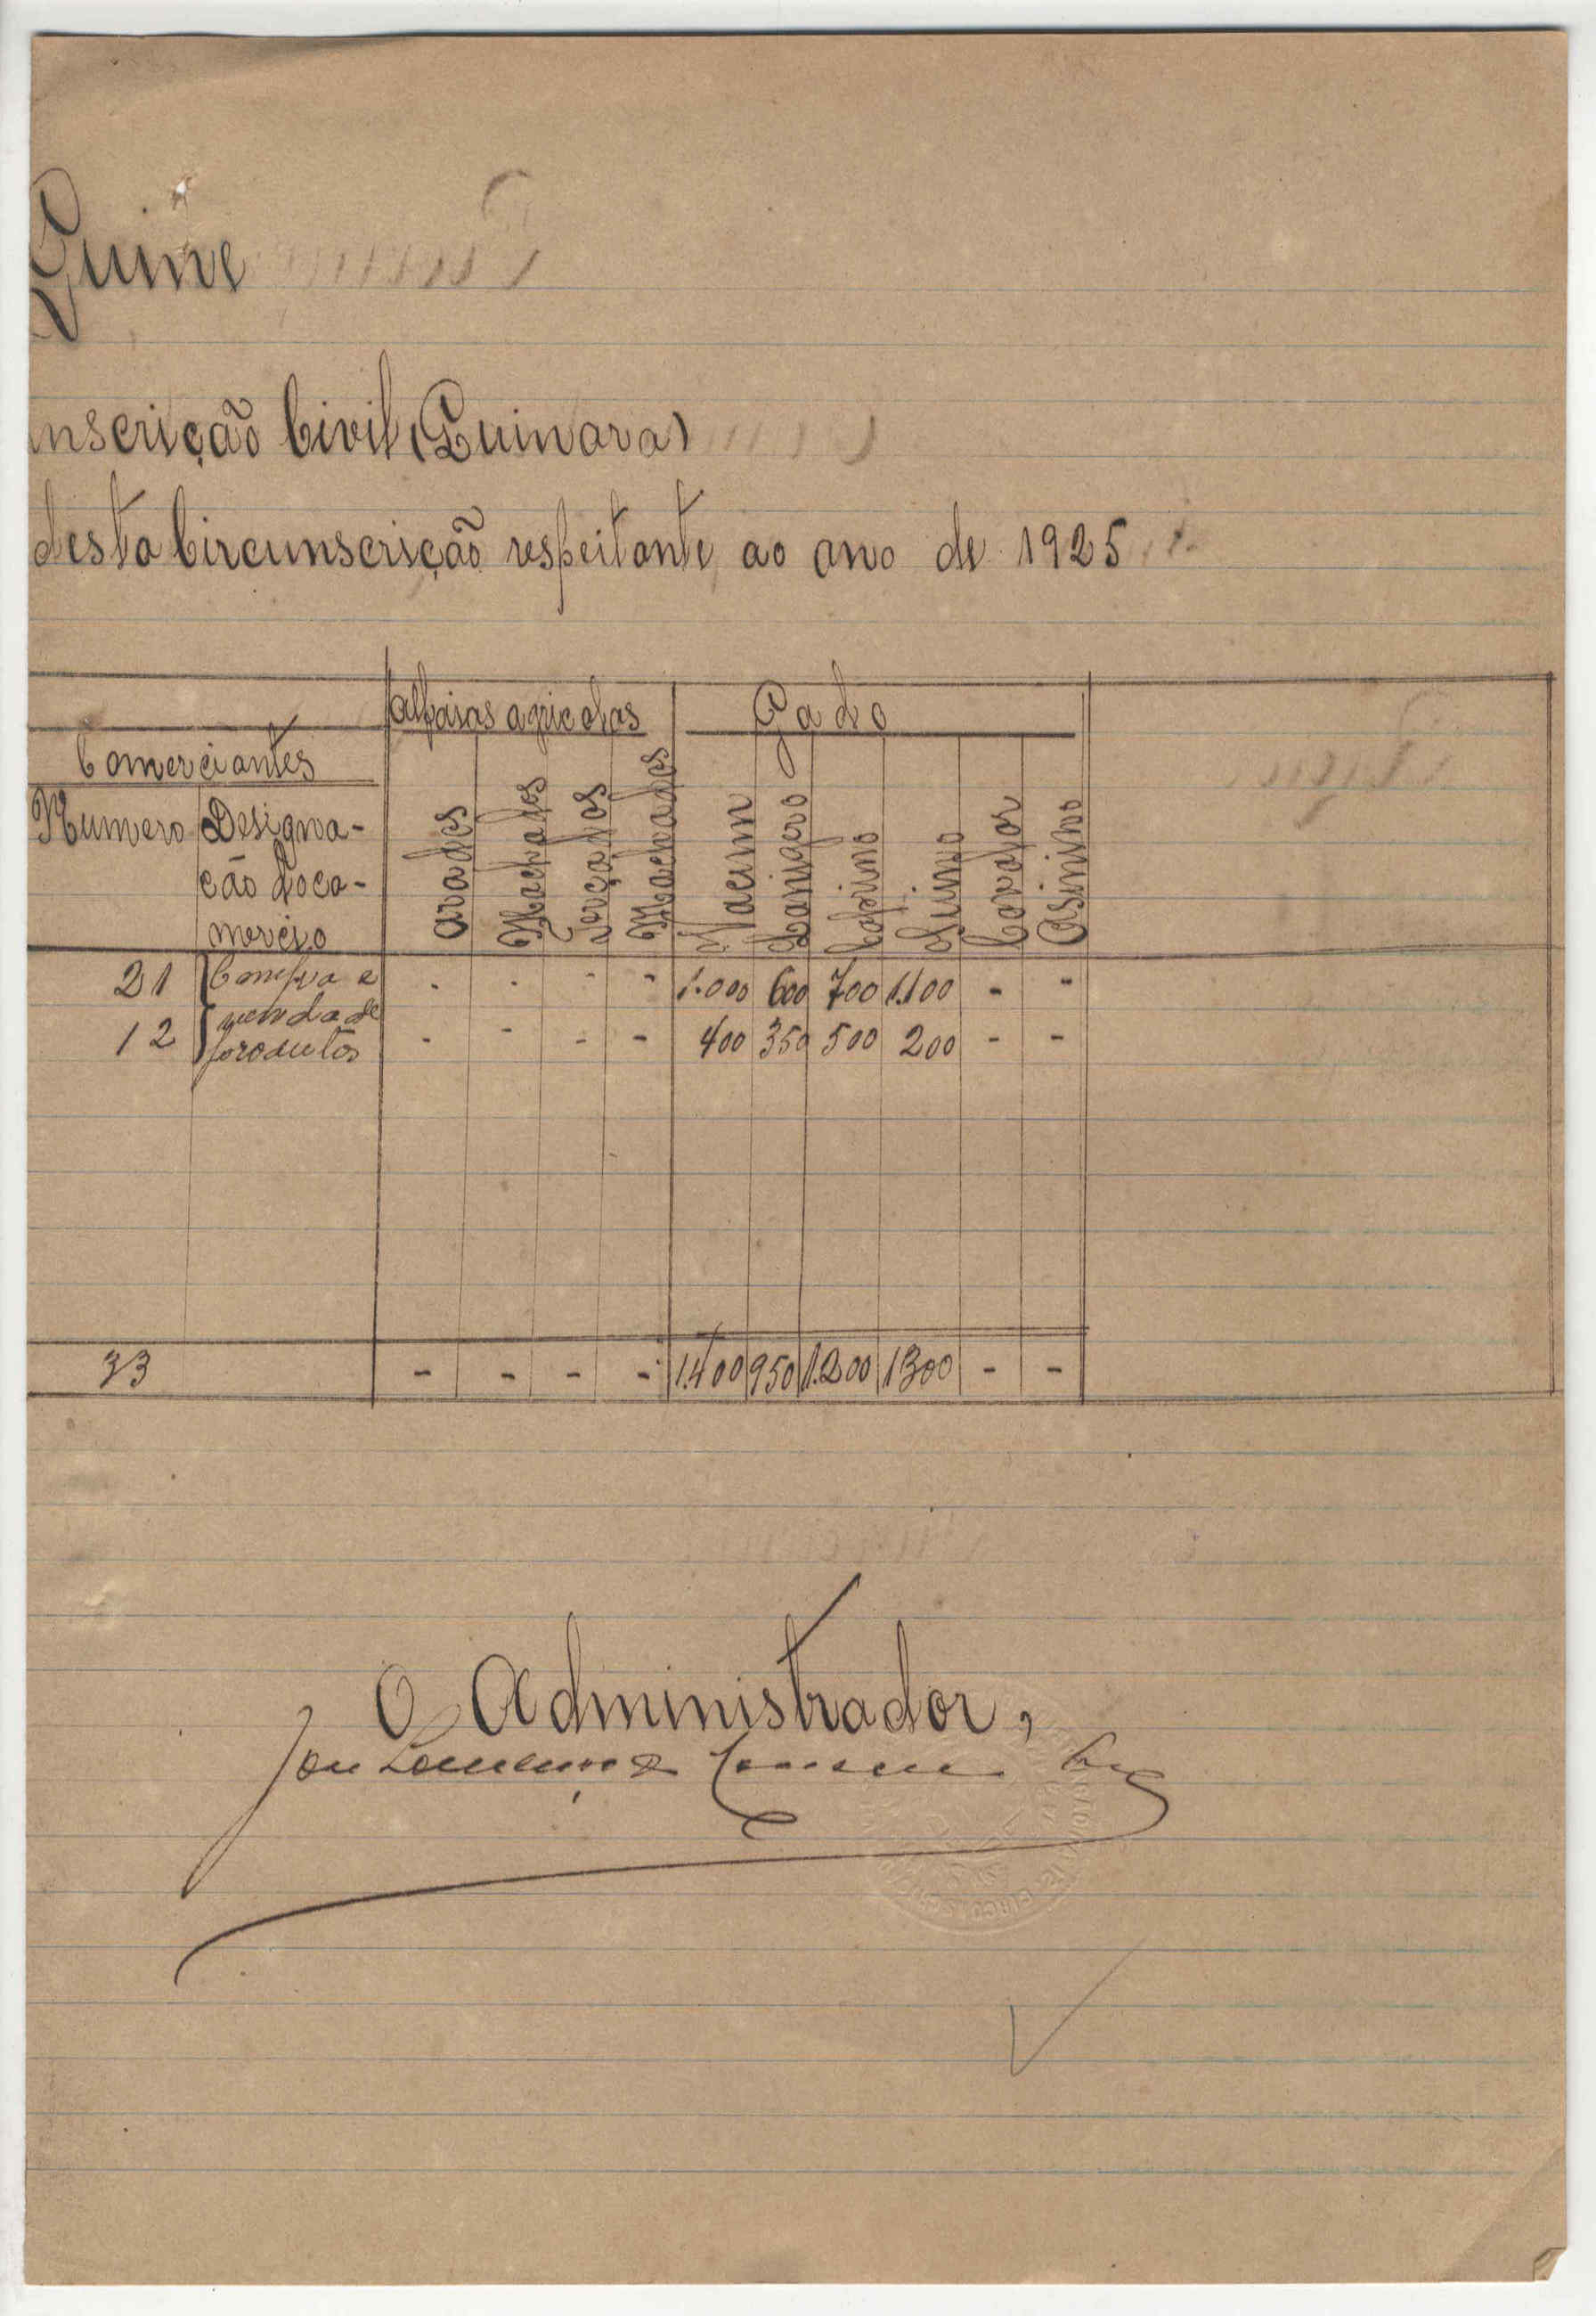 Guine
nscrição Civil (Quinara)
desta Circunscrição respeitante ao ano de 1925
Alfaias agricolas Gado
Comerciantes
Numero Designa-
ção do co-
mercio
Arados Machados Terçados Machados Vacum Lanigero Caprino Suino Cavalar Asinino
21 Compra e - - - - 1.000 600 700 1.100 - -
venda de
12 produtos - - - - 400 350 500 200 - -
33 - - - - 1.400 950 1.200 1300 - -
O Administrador,